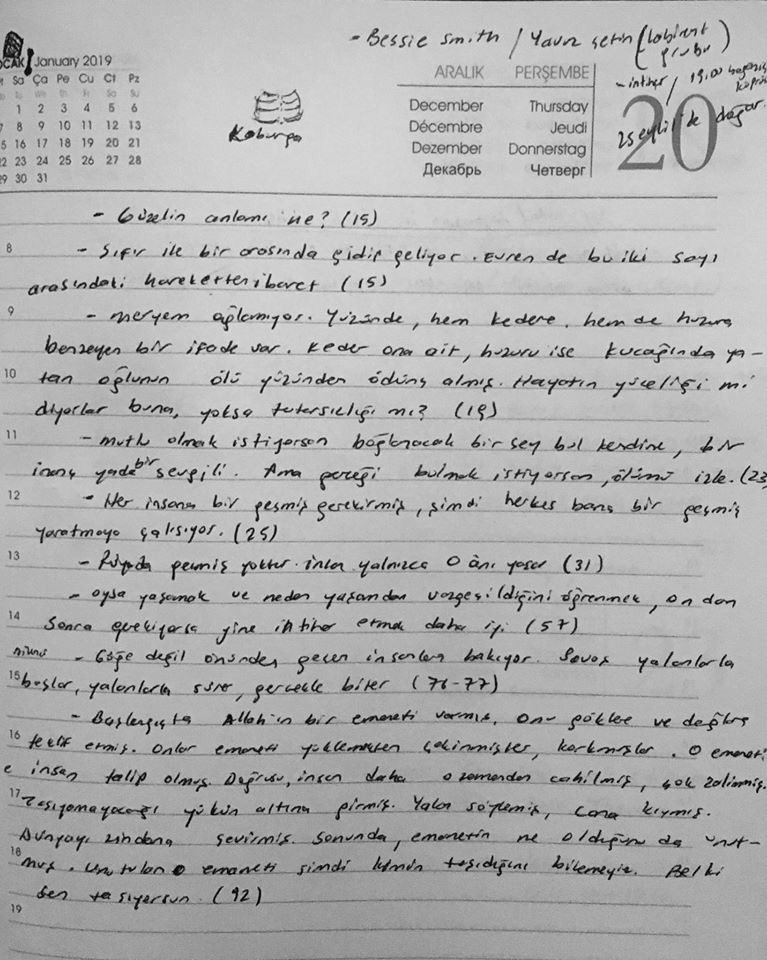 - Bessie Smith / Yavuz Çetin (Labirent grubu)
OCAK January 2019
Sa Ça Pe Cu Ct Pz
1 2 3 4 5 6
7 8 9 10 11 12 13
15 16 17 18 19 20 21
22 23 24 25 26 27 28
29 30 31
Kaburga
ARALIK PERŞEMBE
December Thursday
Décembre Jeudi
Dezember Donnerstag
Декабрь Четверг
20
- intihar / 19:00 boğaziçi köprüsü
25 eylül'de doğar.
- Güzelin anlamı ne? (15)
8
- Sıfır ile bir arasında gidip geliyor. Evren de bu iki sayı
arasındaki hareketten ibaret (15)
9
- Meryem ağlamıyor. Yüzünde, hem kedere, hem de huzura
benzeyen bir ifade var. Keder ona ait, huzuru ise kucağında ya-
10
tan oğlunun ölü yüzünden ödünç almış. Hayatın yüceliği mi
diyorlar buna, yoksa tutarsızlığı mı? (19)
11
- mutlu olmak istiyorsan bağlanacak bir şey bul kendine, bir
inanç yada bir sevgili. Ama gerçeği bulmak istiyorsan, ölümü izle. (23)
12
- Her insana bir geçmiş gerekirmiş, şimdi herkes bana bir geçmiş
yaratmaya çalışıyor. (25)
13
- Rüyada geçmiş yoktur. insan yalnızca o ânı yaşar (31)
- oysa yaşamak ve neden yaşamdan vazgeçildiğini öğrenmek, ondan
14
sonra gerekiyorsa yine intihar etmek daha iyi (57)
- Göğe değil önünden geçen insanlara bakıyor. Savaş yalanlarla
15
başlar, yalanlarla sürer, gerçekle biter (76-77)
- Başlangıçta Allah'ın bir emaneti varmış. Onu göklere ve dağlara
16
teklif etmiş. Onlar emaneti yüklemekten çekinmişler, korkmuşlar. O emanet
e insan talip olmuş. Doğrusu, insan daha o zamandan cahilmiş, çok zalimmiş.
17
Taşıyamayacağı yükün altına girmiş. Yalan söylemiş, cana kıymış.
Dünyayı zindana çevirmiş. Sonunda, emanetin ne olduğunu da unut-
18
muş. Unutulan o emaneti şimdi kimin taşıdığını bilemeyiz. Belki
sen taşıyorsun. (92)
19